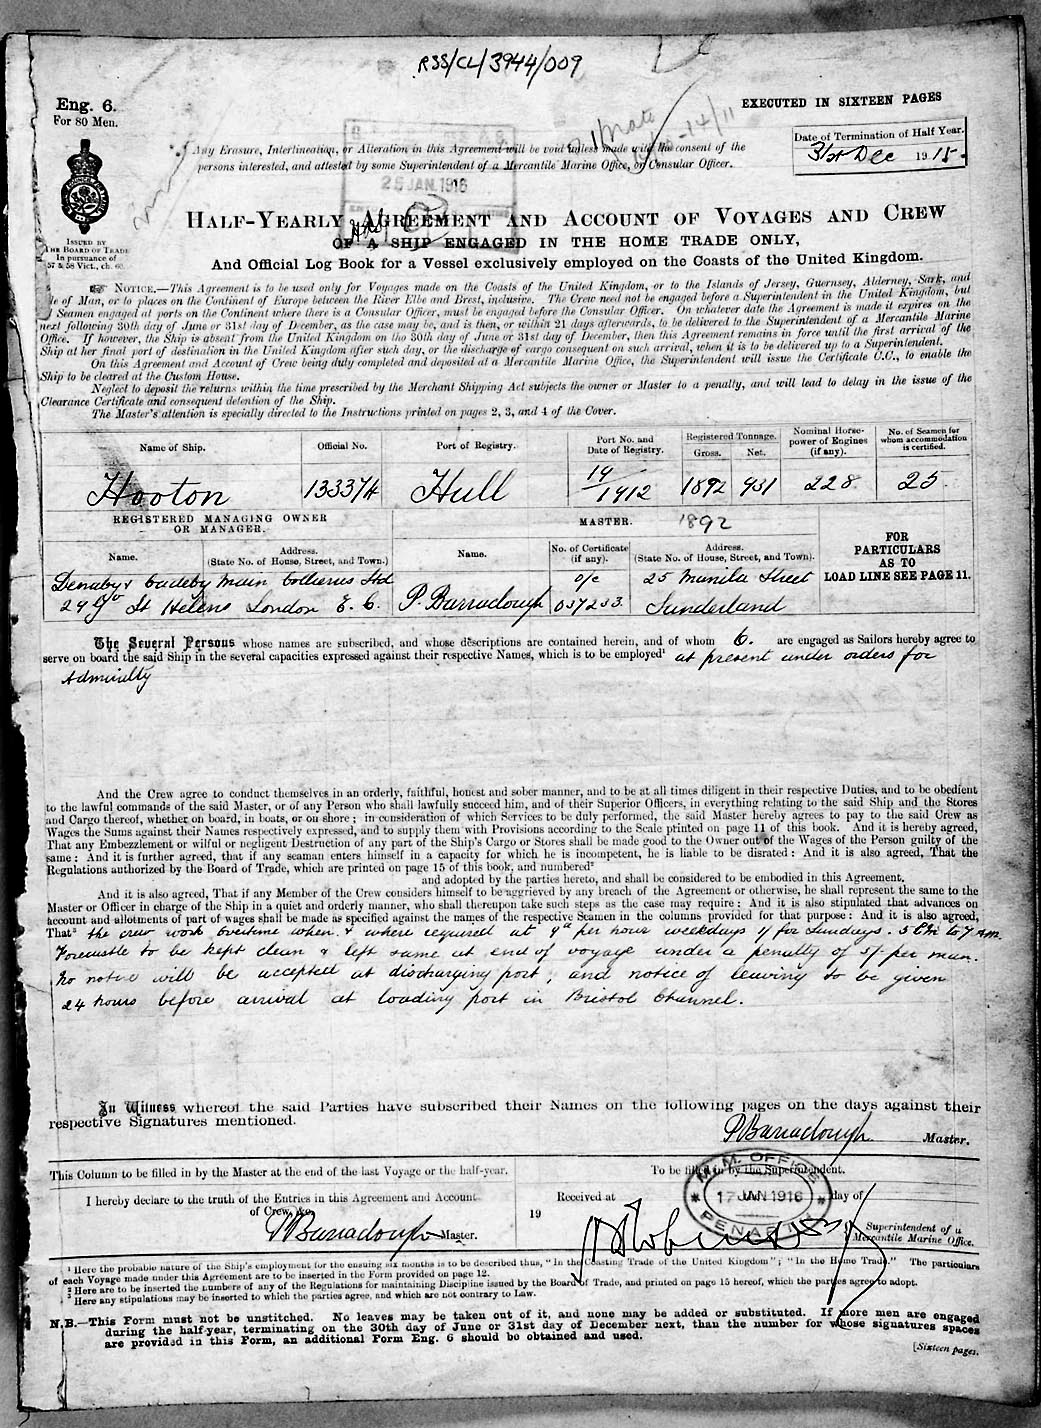 RSS/CL/3944/009
Eng. 6.
For 80 Men.
EXECUTED IN SIXTEEN PAGES
Date of Termination of Half Year.
31st Dec 1915.
Any Erasure, Interlineation, or Alteration in this Agreement will be void unless made with the consent of the
persons interested, and attested by some Superintendent of a Mercantile Marine Office, or Consular Officer.
25 JAN. 1916
HALF-YEARLY AGREEMENT AND ACCOUNT OF VOYAGES AND CREW
OF A SHIP ENGAGED IN THE HOME TRADE ONLY,
And Official Log Book for a Vessel exclusively employed on the Coasts of the United Kingdom.
ISSUED BY
THE BOARD OF TRADE
In pursuance of
57 & 58 Vict., ch. 60.
NOTICE.—This Agreement is to be used only for Voyages made on the Coasts of the United Kingdom, or to the Islands of Jersey, Guernsey, Alderney, Sark, and
le of Man, or to places on the Continent of Europe between the River Elbe and Brest, inclusive. The Crew need not be engaged before a Superintendent in the United Kingdom, but
Seamen engaged at ports on the Continent where there is a Consular Officer, must be engaged before the Consular Officer. On whatever date the Agreement is made it expires on the
next following 30th day of June or 31st day of December, as the case may be, and is then, or within 21 days afterwards, to be delivered to the Superintendent of a Mercantile Marine
Office. If however, the Ship is absent from the United Kingdom on the 30th day of June or 31st day of December, then this Agreement remains in force until the first arrival of the
Ship at her final port of destination in the United Kingdom after such day, or the discharge of cargo consequent on such arrival, when it is to be delivered up to a Superintendent.
On this Agreement and Account of Crew being duly completed and deposited at a Mercantile Marine Office, the Superintendent will issue the Certificate C.C., to enable the
Ship to be cleared at the Custom House.
Neglect to deposit the returns within the time prescribed by the Merchant Shipping Act subjects the owner or Master to a penalty, and will lead to delay in the issue of the
Clearance Certificate and consequent detention of the Ship.
The Master's attention is specially directed to the Instructions printed on pages 2, 3, and 4 of the Cover.
Name of Ship. Official No. Port of Registry. Port No. and Date of Registry. Registered Tonnage. Gross. Net. Nominal Horse-power of Engines (if any). No. of Seamen for whom accommodation is certified.
Hooton 133374 Hull 14/1912 1892 931 228 25
REGISTERED MANAGING OWNER OR MANAGER. MASTER. 1892
Name. Address. (State No. of House, Street, and Town.) Name. No. of Certificate (if any). Address. (State No. of House, Street, and Town). FOR PARTICULARS AS TO LOAD LINE SEE PAGE 11.
Denaby & Cadeby Main Collieries Ltd o/c 25 Manila Street
29 Gt St Helens London E.C. P. Barraclough 037233. Sunderland
The Several Persons whose names are subscribed, and whose descriptions are contained herein, and of whom 6. are engaged as Sailors hereby agree to
serve on board the said Ship in the several capacities expressed against their respective Names, which is to be employed¹ at present under orders for
Admiralty
And the Crew agree to conduct themselves in an orderly, faithful, honest and sober manner, and to be at all times diligent in their respective Duties, and to be obedient
to the lawful commands of the said Master, or of any Person who shall lawfully succeed him, and of their Superior Officers, in everything relating to the said Ship and the Stores
and Cargo thereof, whether on board, in boats, or on shore; in consideration of which Services to be duly performed, the said Master hereby agrees to pay to the said Crew as
Wages the Sums against their Names respectively expressed, and to supply them with Provisions according to the Scale printed on page 11 of this book. And it is hereby agreed,
That any Embezzlement or wilful or negligent Destruction of any part of the Ship's Cargo or Stores shall be made good to the Owner out of the Wages of the Person guilty of the
same: And it is further agreed, that if any seaman enters himself in a capacity for which he is incompetent, he is liable to be disrated: And it is also agreed, That the
Regulations authorized by the Board of Trade, which are printed on page 15 of this book, and numbered²
and adopted by the parties hereto, and shall be considered to be embodied in this Agreement.
And it is also agreed, That if any Member of the Crew considers himself to be aggrieved by any breach of the Agreement or otherwise, he shall represent the same to the
Master or Officer in charge of the Ship in a quiet and orderly manner, who shall thereupon take such steps as the case may require: And it is also stipulated that advances on
account and allotments of part of wages shall be made as specified against the names of the respective Seamen in the columns provided for that purpose: And it is also agreed,
That³ the crew work overtime when & where required at 9d per hour weekdays 1/ for Sundays. 5 Pm to 7 am.
Forecastle to be kept clean & left same at end of voyage under a penalty of 5/- per man.
No notice will be accepted at discharging port, and notice of leaving to be given
24 hours before arrival at loading port in Bristol Channel.
In Witness whereof the said Parties have subscribed their Names on the following pages on the days against their
respective Signatures mentioned.
P Barraclough Master.
This Column to be filled in by the Master at the end of the last Voyage or the half-year.
To be filled in by the Superintendent.
I hereby declare to the truth of the Entries in this Agreement and Account
of Crew, &c.
P Barraclough Master.
19
Received at day of
M.M. OFFICE
17 JAN 1916
PENARTH
Superintendent of a
Mercantile Marine Office.
¹ Here the probable nature of the Ship's employment for the ensuing six months is to be described thus, "In the Coasting Trade of the United Kingdom"; "In the Home Trade." The particulars
of each Voyage made under this Agreement are to be inserted in the Form provided on page 12.
² Here are to be inserted the numbers of any of the Regulations for maintaining Discipline issued by the Board of Trade, and printed on page 15 hereof, which the parties agree to adopt.
³ Here any stipulations may be inserted to which the parties agree, and which are not contrary to Law.
N.B.—This Form must not be unstitched. No leaves may be taken out of it, and none may be added or substituted. If more men are engaged
during the half-year, terminating on the 30th day of June or 31st day of December next, than the number for whose signatures spaces
are provided in this Form, an additional Form Eng. 6 should be obtained and used.
[Sixteen pages.